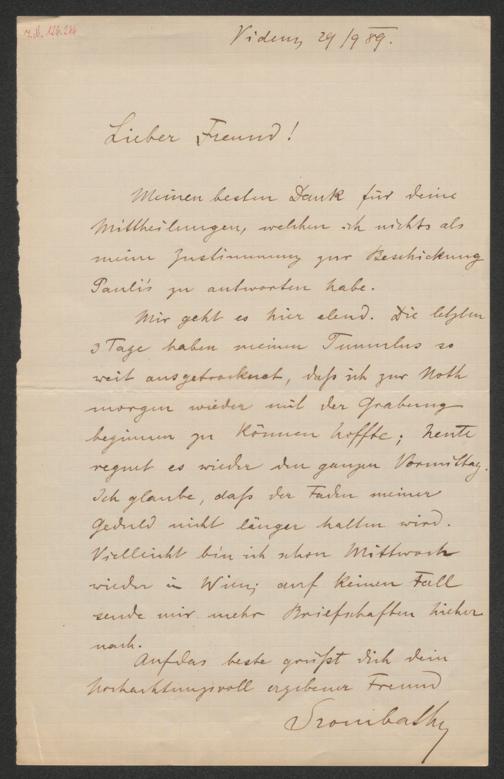 Videm, 29/9 89.
Lieber Freund!
Meinen besten Dank für deine
Mittheilungen, welchen ich nichts als
meine Zustimmung zur Beschickung
Pauli's zu antworten habe.
Mir geht es hier elend. Die letzten
3 Tage haben meinen Tumulus so
weit ausgetrocknet, daß ich zur Noth
morgen wieder mit der Grabung
beginnen zu können hoffte; heute
regnet es wieder den ganzen Vormittag.
Ich glaube, daß der Faden meiner
Geduld nicht länger halten wird.
Vielleicht bin ich schon Mittwoch
wieder in Wien; auf keinen Fall
sende mir mehr Briefschaften hieher
nach.
Auf das beste grüßt dich dein
hochachtungsvoll ergebener Freund
Szombathy